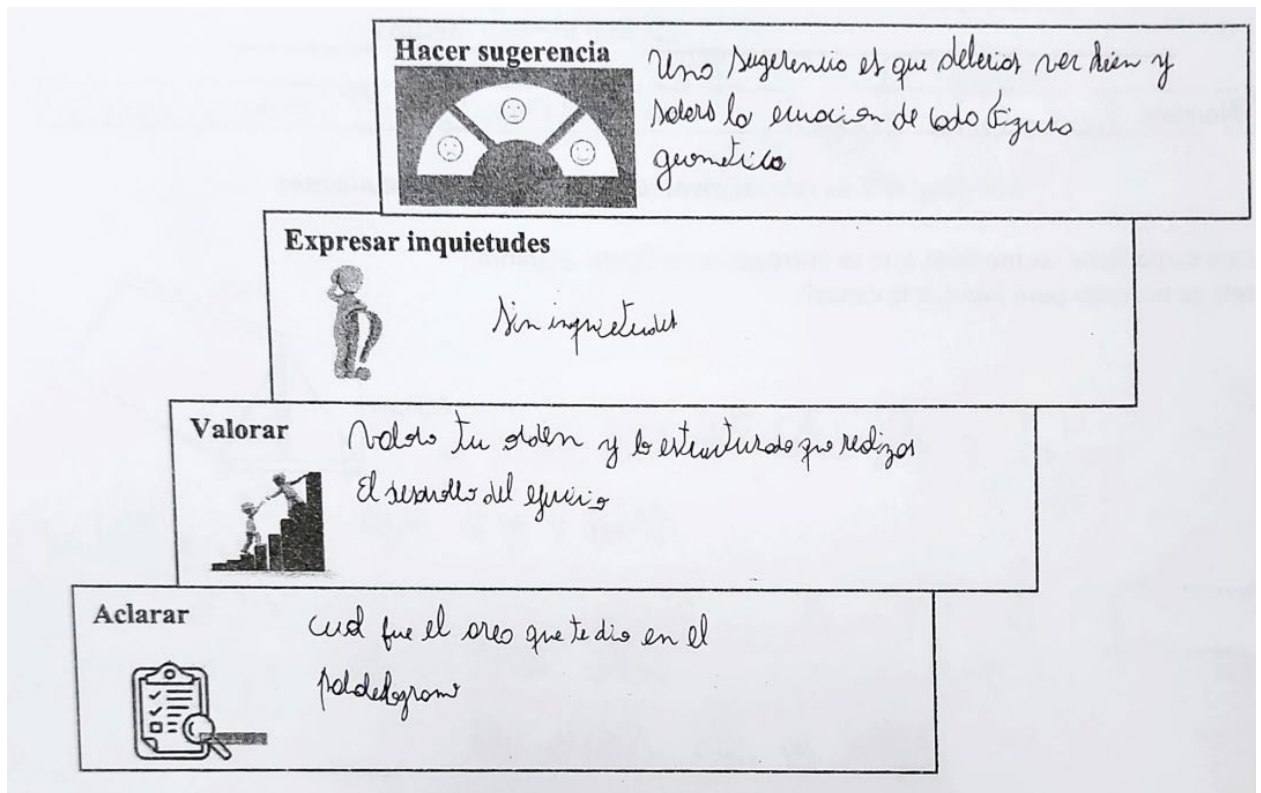 Hacer sugerencia
Una sugerencia es que deberias ver bien y
la ecuacion de cada figura
geometrica
Expresar inquietudes
Sin inquietudes
Valorar
Valoro tu orden y lo estructurado que realizas
El desarrollo del ejercicio
Aclarar
cual fue el area que te dio en el